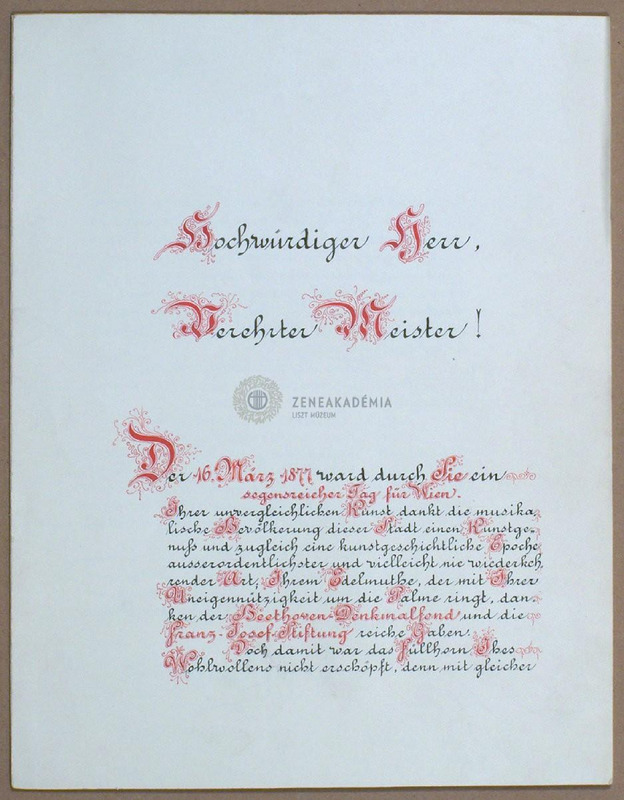 Hochwürdiger Herr,
Verehrter Meister!
ZENEAKADÉMIA
LISZT MÚZEUM
Der 16. März 1877 ward durch Sie ein
segensreicher Tag für Wien.
Ihrer unvergleichlichen Kunst dankt die musika-
lische Bevölkerung dieser Stadt einen Kunstge-
nuß und zugleich eine kunstgeschichtliche Epoche
ausserordentlichster und vielleicht nie wiederkeh
render Art; Ihrem Edelmuthe, der mit Ihrer
Uneigennützigkeit um die Palme ringt, dan-
ken der Beethoven-Denkmalfond und die
Franz-Josef-Stiftung reiche Gaben.
Doch damit war das Füllhorn Ihes
Wohlwollens nicht erschöpft, denn mit gleicher